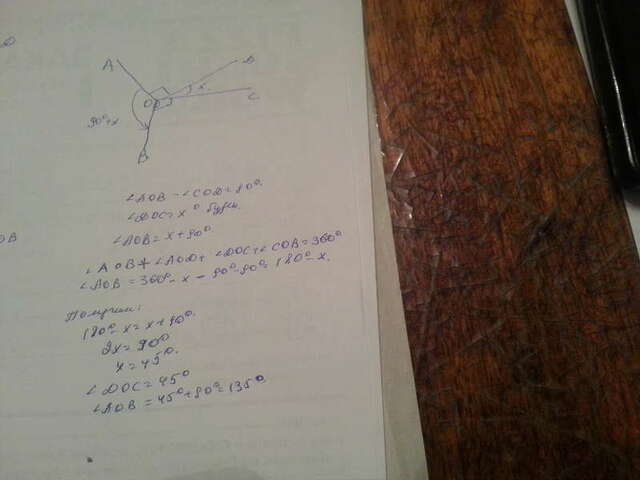 A
D
x
C
O
90°+x
B
∠AOB - ∠COD = 90°.
∠DOC = x° будем.
∠AOB = x + 90°.
∠AOB + ∠AOD + ∠DOC + ∠COB = 360°
∠AOB = 360° - x - 90° - 90° = 180° - x.
Получим:
180° - x = x + 90°.
2x = 90°
x = 45°.
∠DOC = 45°
∠AOB = 45° + 90° = 135°.